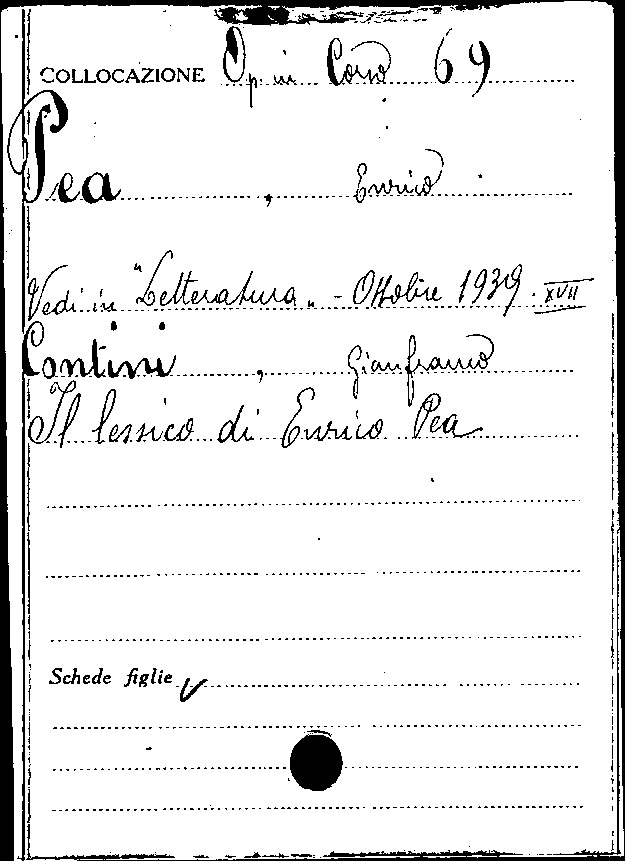 COLLOCAZIONE Op. in Corso 69
Pea , Enrico
Vedi in "Letteratura„ - Ottobre 1939. XVII
Contini , Gianfranco
Il lessico di Enrico Pea
Schede figlie